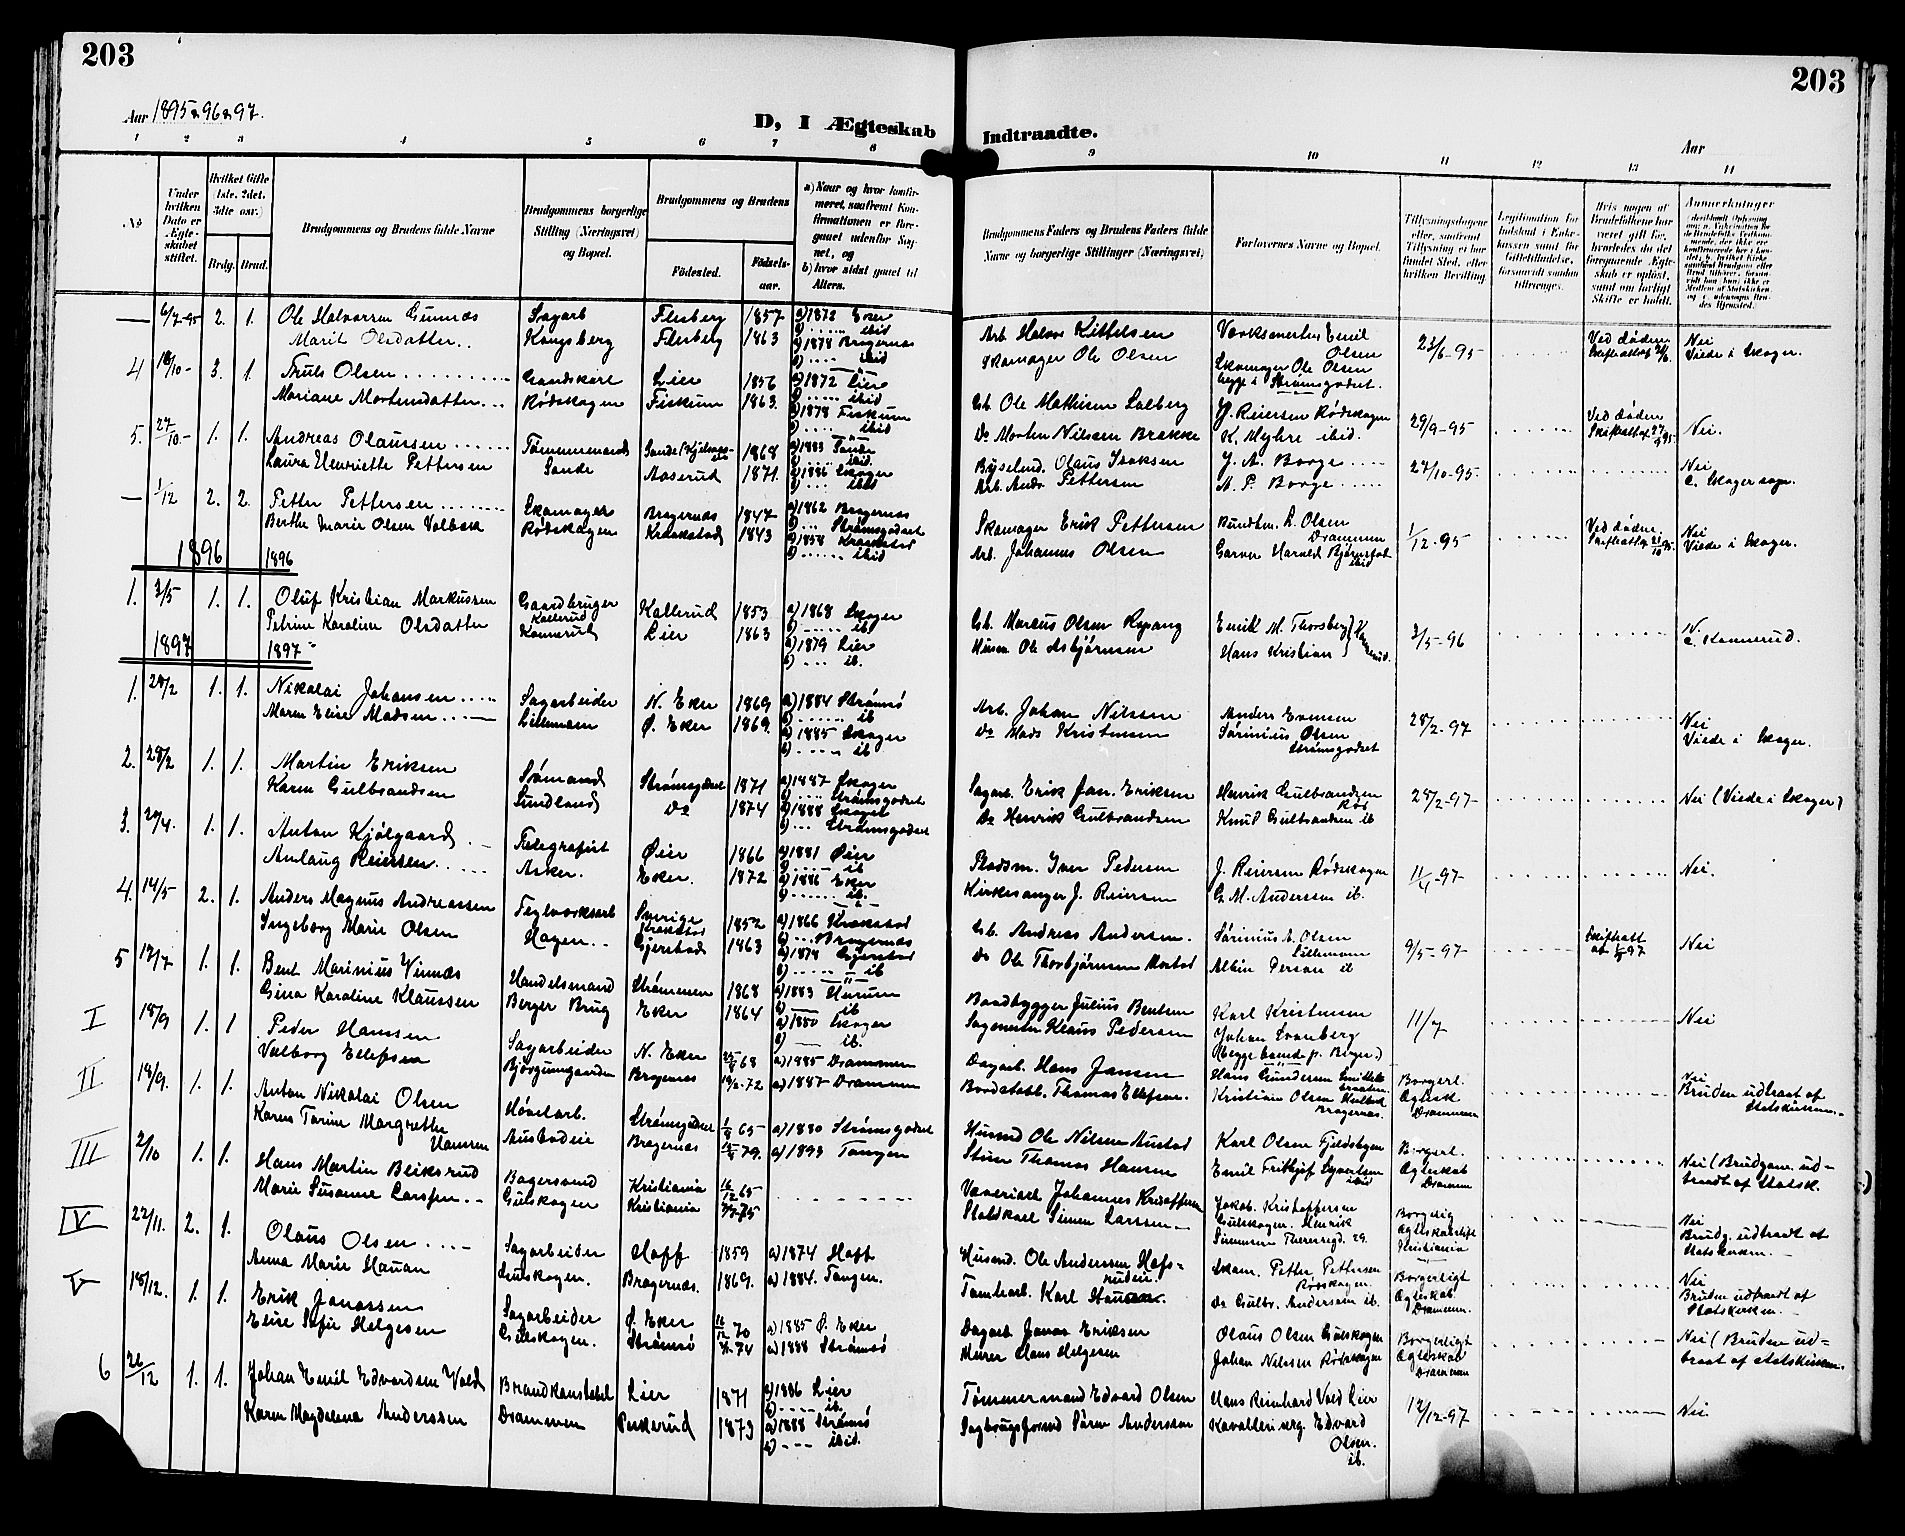 203
203
Aar 1895 & 96 & 97.
D, I Ægteskab Indtraadte.
Aar
1 2 3 4 5 6 7 8 9 10 11 12 13 14
No
Under hvilken Dato er Ægteskabet stiftet.
Hvilket Gifte (1ste. 2det. 3dte osv.)
Brdg. Brud.
Brudgommens og Brudens fulde Navne
Brudgommens borgerlige Stilling (Næringsvei) og Bopæl.
Brudgommens og Brudens
Födested. Födsels-aar.
a) Naar og hvor konfirmeret, saafremt Konfirmationen er foregaaet udenfor Sognet, og
b) hvor sidst gaaet til Alters.
Brudgommens Faders og Brudens Faders fulde Navne og borgerlige Stillinger (Næringsvei)
Forlovernes Navne og Bopæl.
Tillysningsdagene eller, saafremt Tillysning ei har fundet Sted, efter hvilken Bevilling
Legitimation for Indskud i Enkekassen samt for Giftetilladelse, forsaavidt saadan tiltrænges.
Hvis nogen af Brudefolkene har været gift før, hvorledes da det foregaaende Ægteskab er opløst, samt om lovligt Skifte er holdt.
Anmærkninger
— 6/7-95 2. 1. Ole Halvorsen Gunnæs Sagarb Flesberg 1857 a) 1872 Eker Arb. Halvor Kittelsen Værksmester Emil Olsen 23/6-95 Ved døden Nei
Marit Olsdatter.. Kongsberg Flesberg 1863 a) 1878 Bragernæs Skomager Ole Olsen Skomager Ole Olsen begge i Strømsgodset. Viede i Skoger.
4 18/10- 3. 1. Truls Olsen Gaardskarl Lier 1856 a) 1872 Lier Gb. Ole Mathisen Solberg J. Reiersen Rødskogen 29/9-95 Ved døden Nei.
Mariane Mortensdatter... Rødskogen Fiskum 1863. a) 1878 Fiskum ibid Do Morten Nilsen Brække K. Myhre ibid.
5. 27/10- 1. 1. Andreas Olaussen Tømmermand Sande 1868 a) 1883 Sande Olaus Isaksen J. A. Borge 27/10-95 Nei
Laura Henriette Pettersen Sande Aaserud 1871. a) 1886 Skoger ibid Arb. Andr. Pettersen A. P. Borge C. Skoger sogn.
— 1/12 2. 2. Petter Pettersen Skomager Bragernæs 1847 a) 1862 Bragernæs Strømsgodset Skomager Erik Pettersen L. Olsen Drammen 1/12-95 Ved døden Nei
Berthe Marie Olsen Volbæk Rødskogen Kraakstad 1843 a) 1858 Kraakstad ibid Arb. Johannes Olsen Garver Harald Bjørnsfos ibid Viede i Skoger.
1896 1896
1. 3/5 1. 1. Oluf Kristian Markussen Gaardbruger Kallerud Kallerud 1853 a) 1868 Skoger ib. Gb. Marcus Olsen Kopang Emil M. Thorsberg 3/5-96 N.
Petrine Karoline Olsdatter Konnerud Lier 1863 a) 1879 Lier ib. Husm Ole Asbjørnsen Hans Kristian C. Konnerud.
1897 1897
1. 28/2 1. 1. Nikolai Johansen Sagarbeider N. Eker 1869 a) 1884 Strømsø ib Arb. Johan Nilssen Anders Evensen 28/2-97 Nei
Maren Elise Madsen Lillemoen Ø. Eker 1869. a) 1885 Skoger ib Do Mads Kristensen Sørinius Olsen Strømsgodset Viede i Skoger.
2. 28/2 1. 1. Martin Eriksen Sømand Strømsgodset 1871 a) 1887 Skoger Strømsgodset Sagarb. Erik Jan. Eriksen Henrik Gulbrandsen 28/2-97 Nei (Viede i Skoger)
Karen Gulbrandsen Sundland Do 1874 a) 1888 Skoger Strømsgodset Do Henrik Gulbrandsen Knud Gulbrandsen ib
3. 20/4. 1. 1. Anton Kjølgaard Telegrafist Øier 1866 a) 1881 Øier ib Pladsm. Iver Pedersen J. Reiersen Rødskogen 11/4-97 Nei.
Anlaug Reiersen Asker. Eker. 1872 a) 1886 Eker ib. Kirkesanger J. Reiersen G. M. Andersen ib.
4. 14/5 2. 1. Anders Magnus Andreassen Teglværksarb Sverige 1852 a) 1866 Krokstad Bragernæs Gb. Andreas Andersen. Sørinius A. Olsen Lillemoen 9/5-97 Nei
Ingeborg Marie Olsen Hagen.. Gjerstad 1863 a) 1878 Gjerstad ib Do Ole Thorbjørnsen Mostad Albin Person ib
5 17/7 1. 1. Bent Marinius Winnæs Handelsmand Strømmen 1868 a) 1883 Hurum ib Baadbygger Julius Bentsen Karl Kristensen 11/7 Nei
Gina Karoline Klaussen Berger Brug Eker 1864 a) 1880 Skoger ib. Sagmester Klaus Pedersen Johan Svanberg (begge boende p. Berger.)
I 18/9 1. 1 Peder Hansen Sagarbeider N. Eker 68 a) 1885 Drammen Dagarb. Hans Jansen Hans Gundersen Borgerl. Nei
Valborg Ellefsen Bragernæs 72 a) 1887 Drammen Bordstabl. Thomas Ellefsen. Kristian Olsen Bragernæs. Ægtesk Drammen Bruden udtraadt af Statskirken.
II 18/9. 1. 1. Anton Nikolai Olsen Høvelarb. Strømsgodset 65 a) 1880 Strømsgodset Husmd Ole Nilsen Austad Karl Olsen Fjeldskogen Borgerl. Nei (Brudgom. ud-
Karen Tarine Margrethe Hansen Austadeie Bragernæs 79. a) 1893 Tangen Thomas Hansen Emil Frithjof Syvertsen ibid Ægteskab Drammen traadt af Statsk.
III 2/10 1. 1. Hans Martin Bleiksrud Bagersvend Kristiania 16/12 65 Væveriarb Johannes Kristoffersen Jakob. Kristoffersen Gulskogen. Borgerlig Nei
Marie Susanne Larssen.. Gulskogen Kristiania 75 Staldkarl Simen Larssen Henrik Simensen Theresesgd. 29. Kristiania Brudg. udtraadt af Statskirken.
IV 22/11. 2. 1. Olaus Olsen Sagarbeider Hoff 1859 a) 1874 Hoff Husmd. Ole Andersen Skom. Petter Pettersen Rødskogen. Borgerligt Nei
Anna Marie Hauan Gulskogen. Bragernæs. 1869. a) 1884. Tangen. Tomtearb. Karl Hauan. Do Gulbr. Andersen ib. Ægteskab Drammen. Bruden udtraadt af Statskirken.
V 18/12. 1. 1. Erik Janassen Sagarbeider Ø. Eker 70 a) 1885 Ø. Eker Dagarb Jonas Eriksen Olaus Olsen Gulskogen Borgerligt Nei (Bruden ud-
Elise Sofie Helgesen Gulskogen. Strømsø 74 a) 1888 Strømsø Murer Hans Helgesen Johan Nilssen Rødskogen Ægteskab Drammen traadt af statskirken.
6 26/12 1. 1. Johan Emil Edvardsen Vold Brandkonstabel Lier 1871 a) 1886 Lier ib. Tømmermand Edvard Olsen Hans Reinhard Vold Lier 12/12-97 Nei.
Karen Magdalena Anderssen Drammen Pukerud 1873 a) 1888 Strømsø ibid. Sagbrugsformd Søren Anderssen Edvard Olsen. ib.